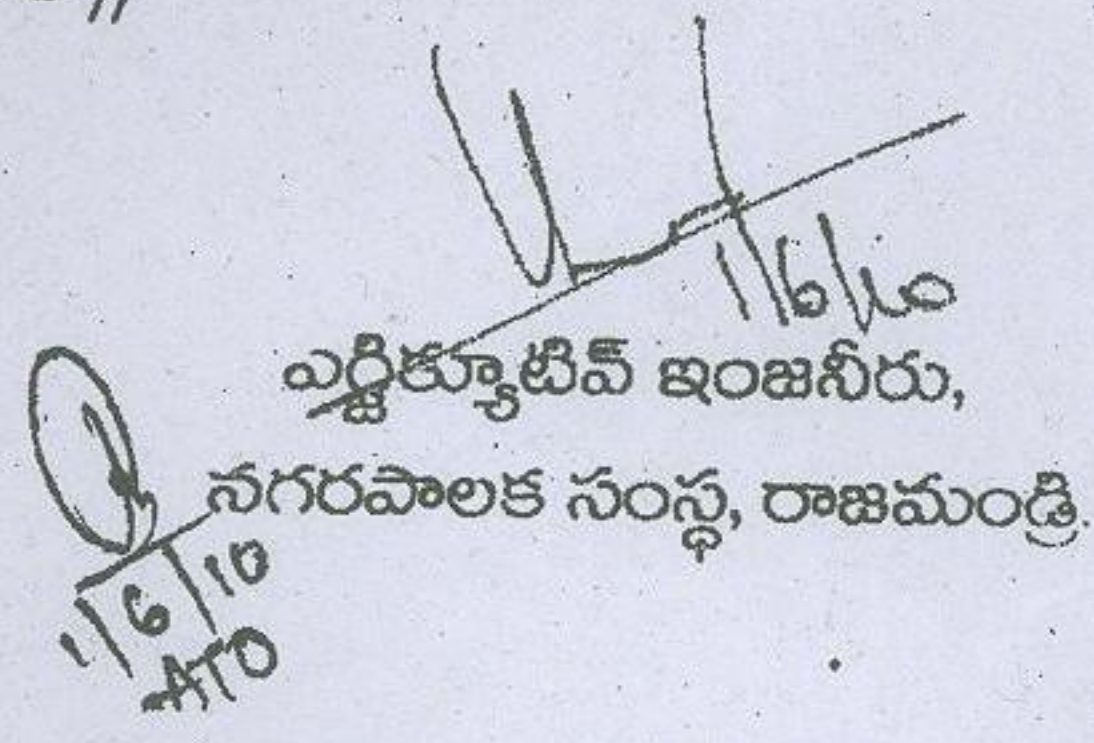 1/6/10
ఎగ్జిక్యూటివ్ ఇంజనీరు,
నగరపాలక సంస్థ, రాజమండ్రి.
1/6/10
ATO